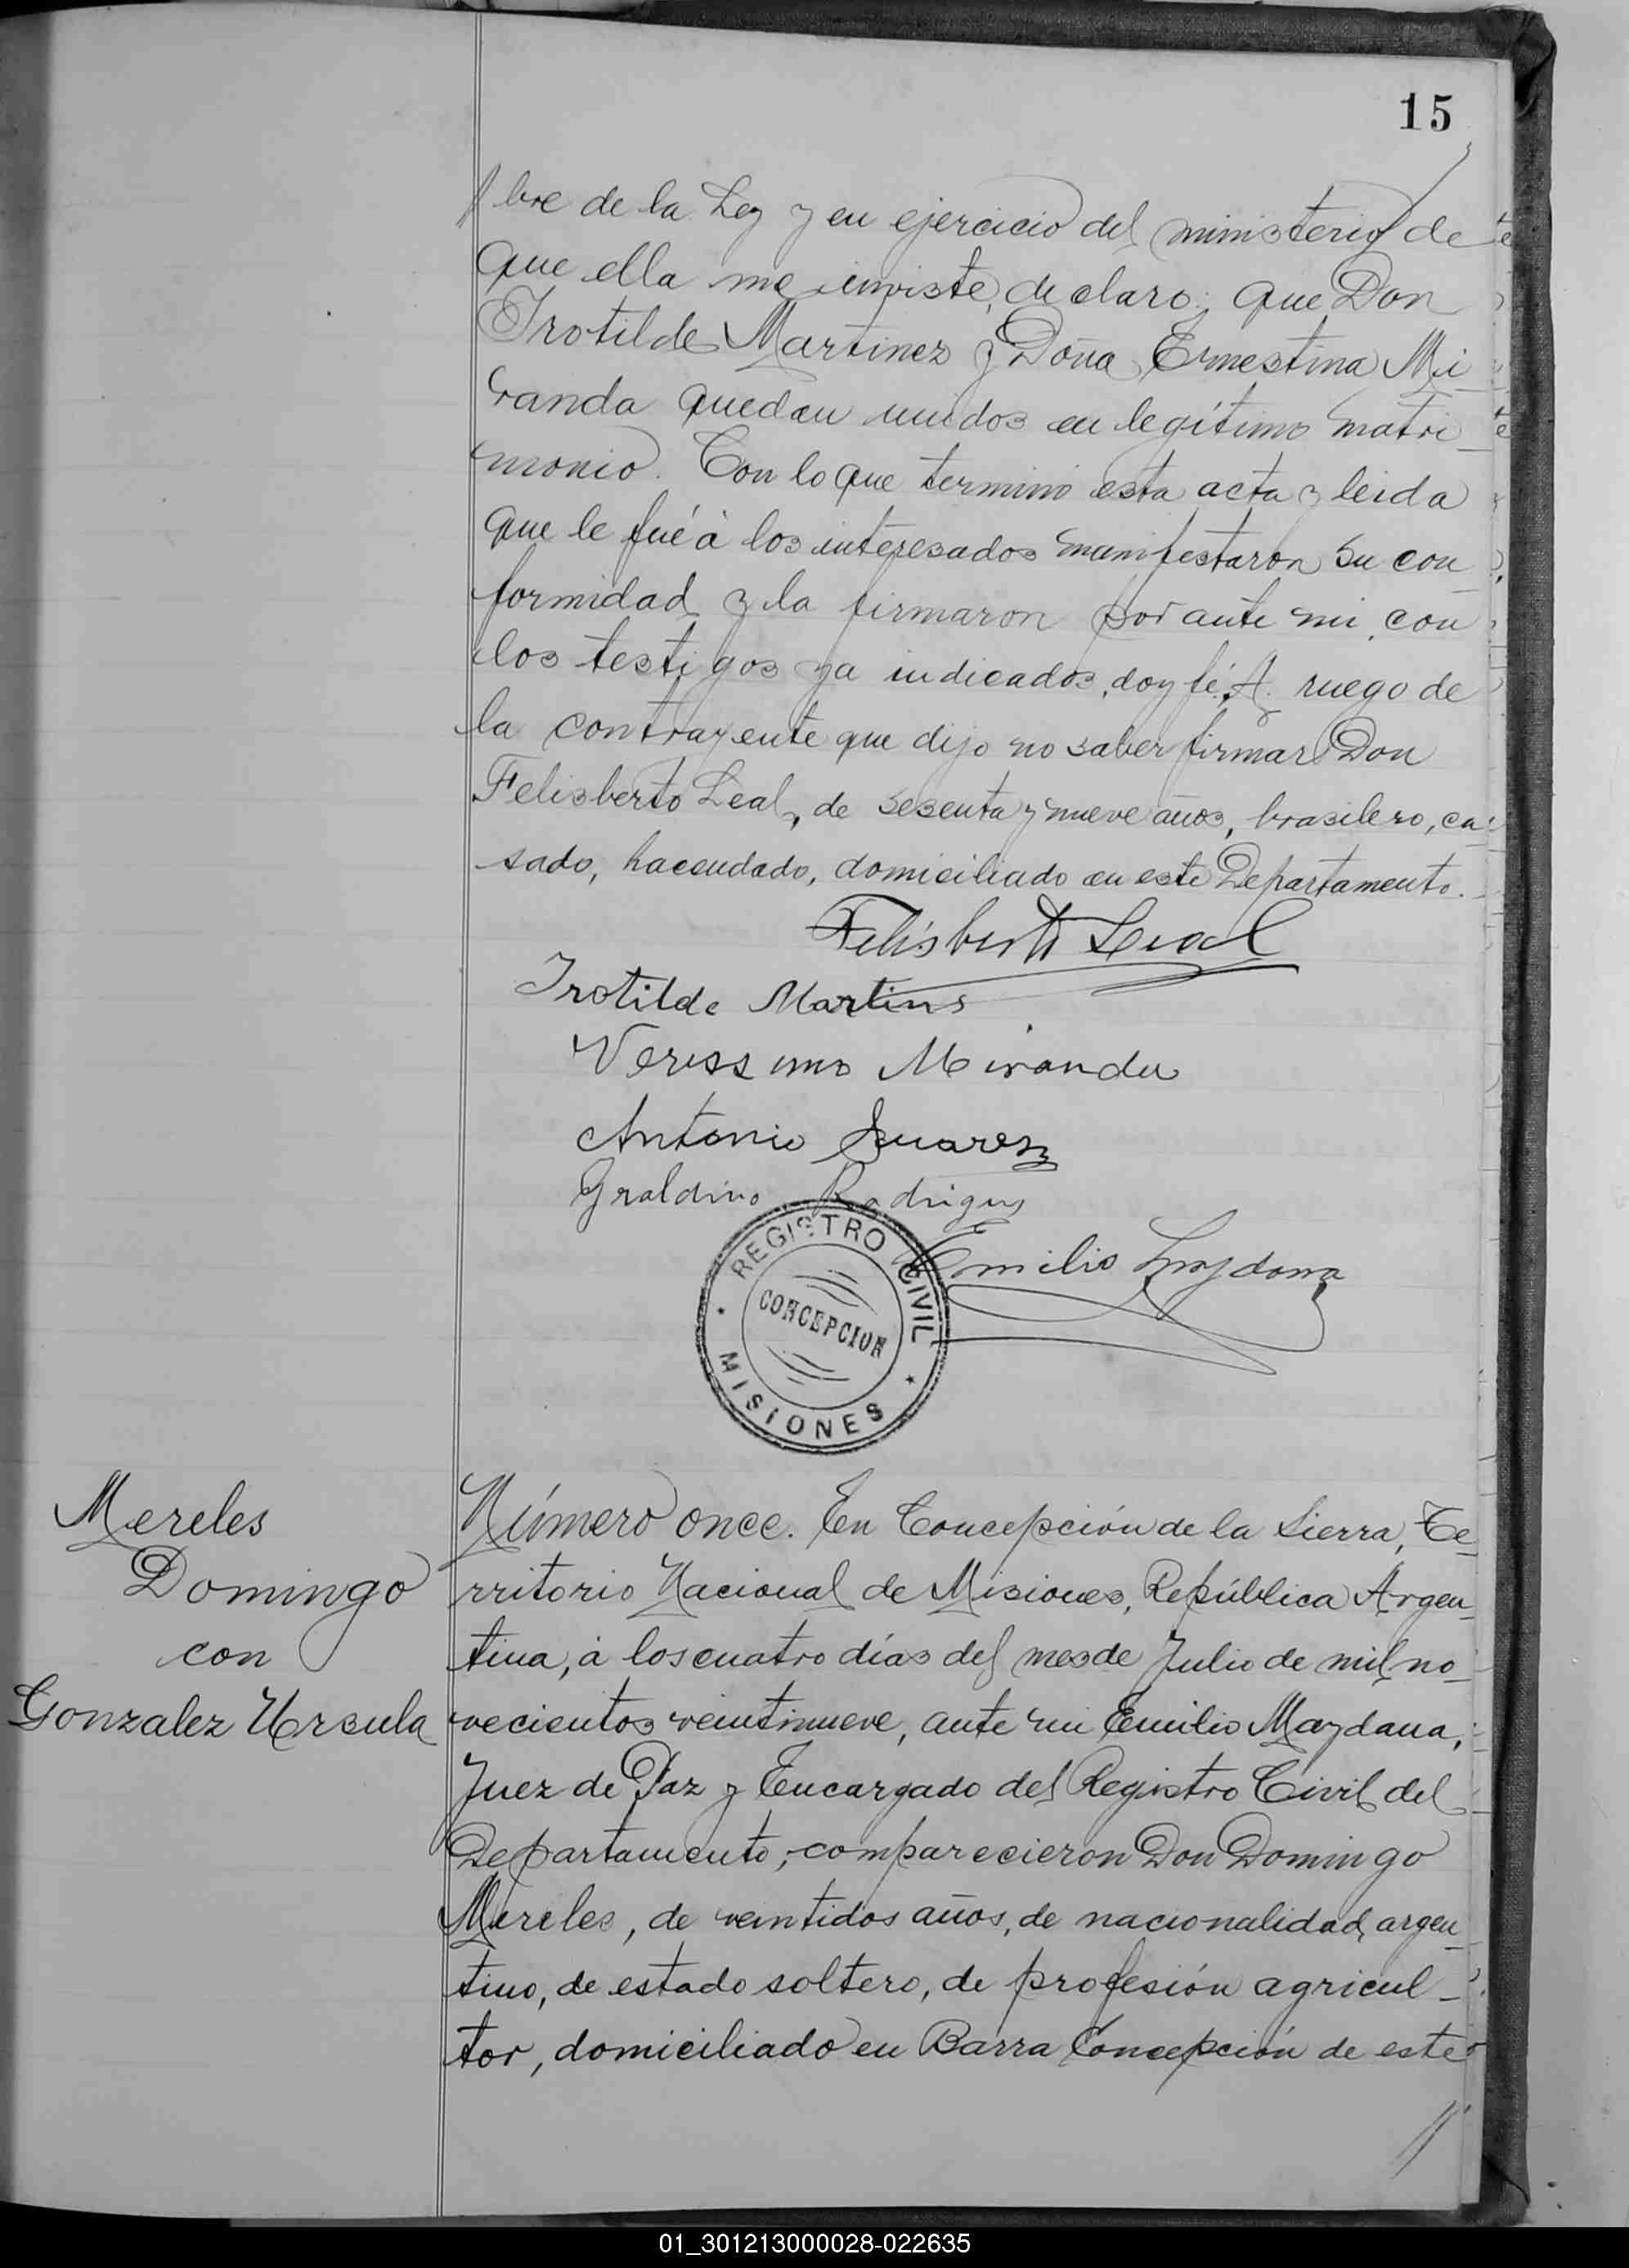 15
bre de la Ley y en ejercicio del ministerio de
que ella me inviste, declaro: Que Don
Trotilde Martinez y Doña Ernestina Mi
randa quedan unidos en legítimo matri
monio. Con lo que terminó esta acta y leida
que le fué á los interesados manifestaron su con
formidad y la firmaron por ante mi, con
los testigos ya indicados, doy fé. A ruego de
la contrayente que dijo no saber firmar Don
Felisberto Leal, de sesenta y nueve años, brasilero, ca
sado, hacendado, domiciliado en este Departamento.
Felisberto Leal
Trotilde Martins
Verissimo Miranda
Antonio Suarez
Graldino Rodrigues
Emilio Maydana
REGISTRO CIVIL
CONCEPCION
MISIONES
Mereles
Domingo
con
Gonzalez Ursula
Número once. En Concepción de la Sierra, Te_
rritorio Nacional de Misiones, República Argen_
tina, á los cuatro días del mes de Julio de mil no_
vecientos veintinueve, ante mi Emilio Maydana,
Juez de Paz y Encargado del Registro Civil del
Departamento, comparecieron Don Domingo
Mereles, de veintidos años, de nacionalidad argen_
tino, de estado soltero, de profesión agricul_
tor, domiciliado en Barra Concepción de este
01_301213000028-022635